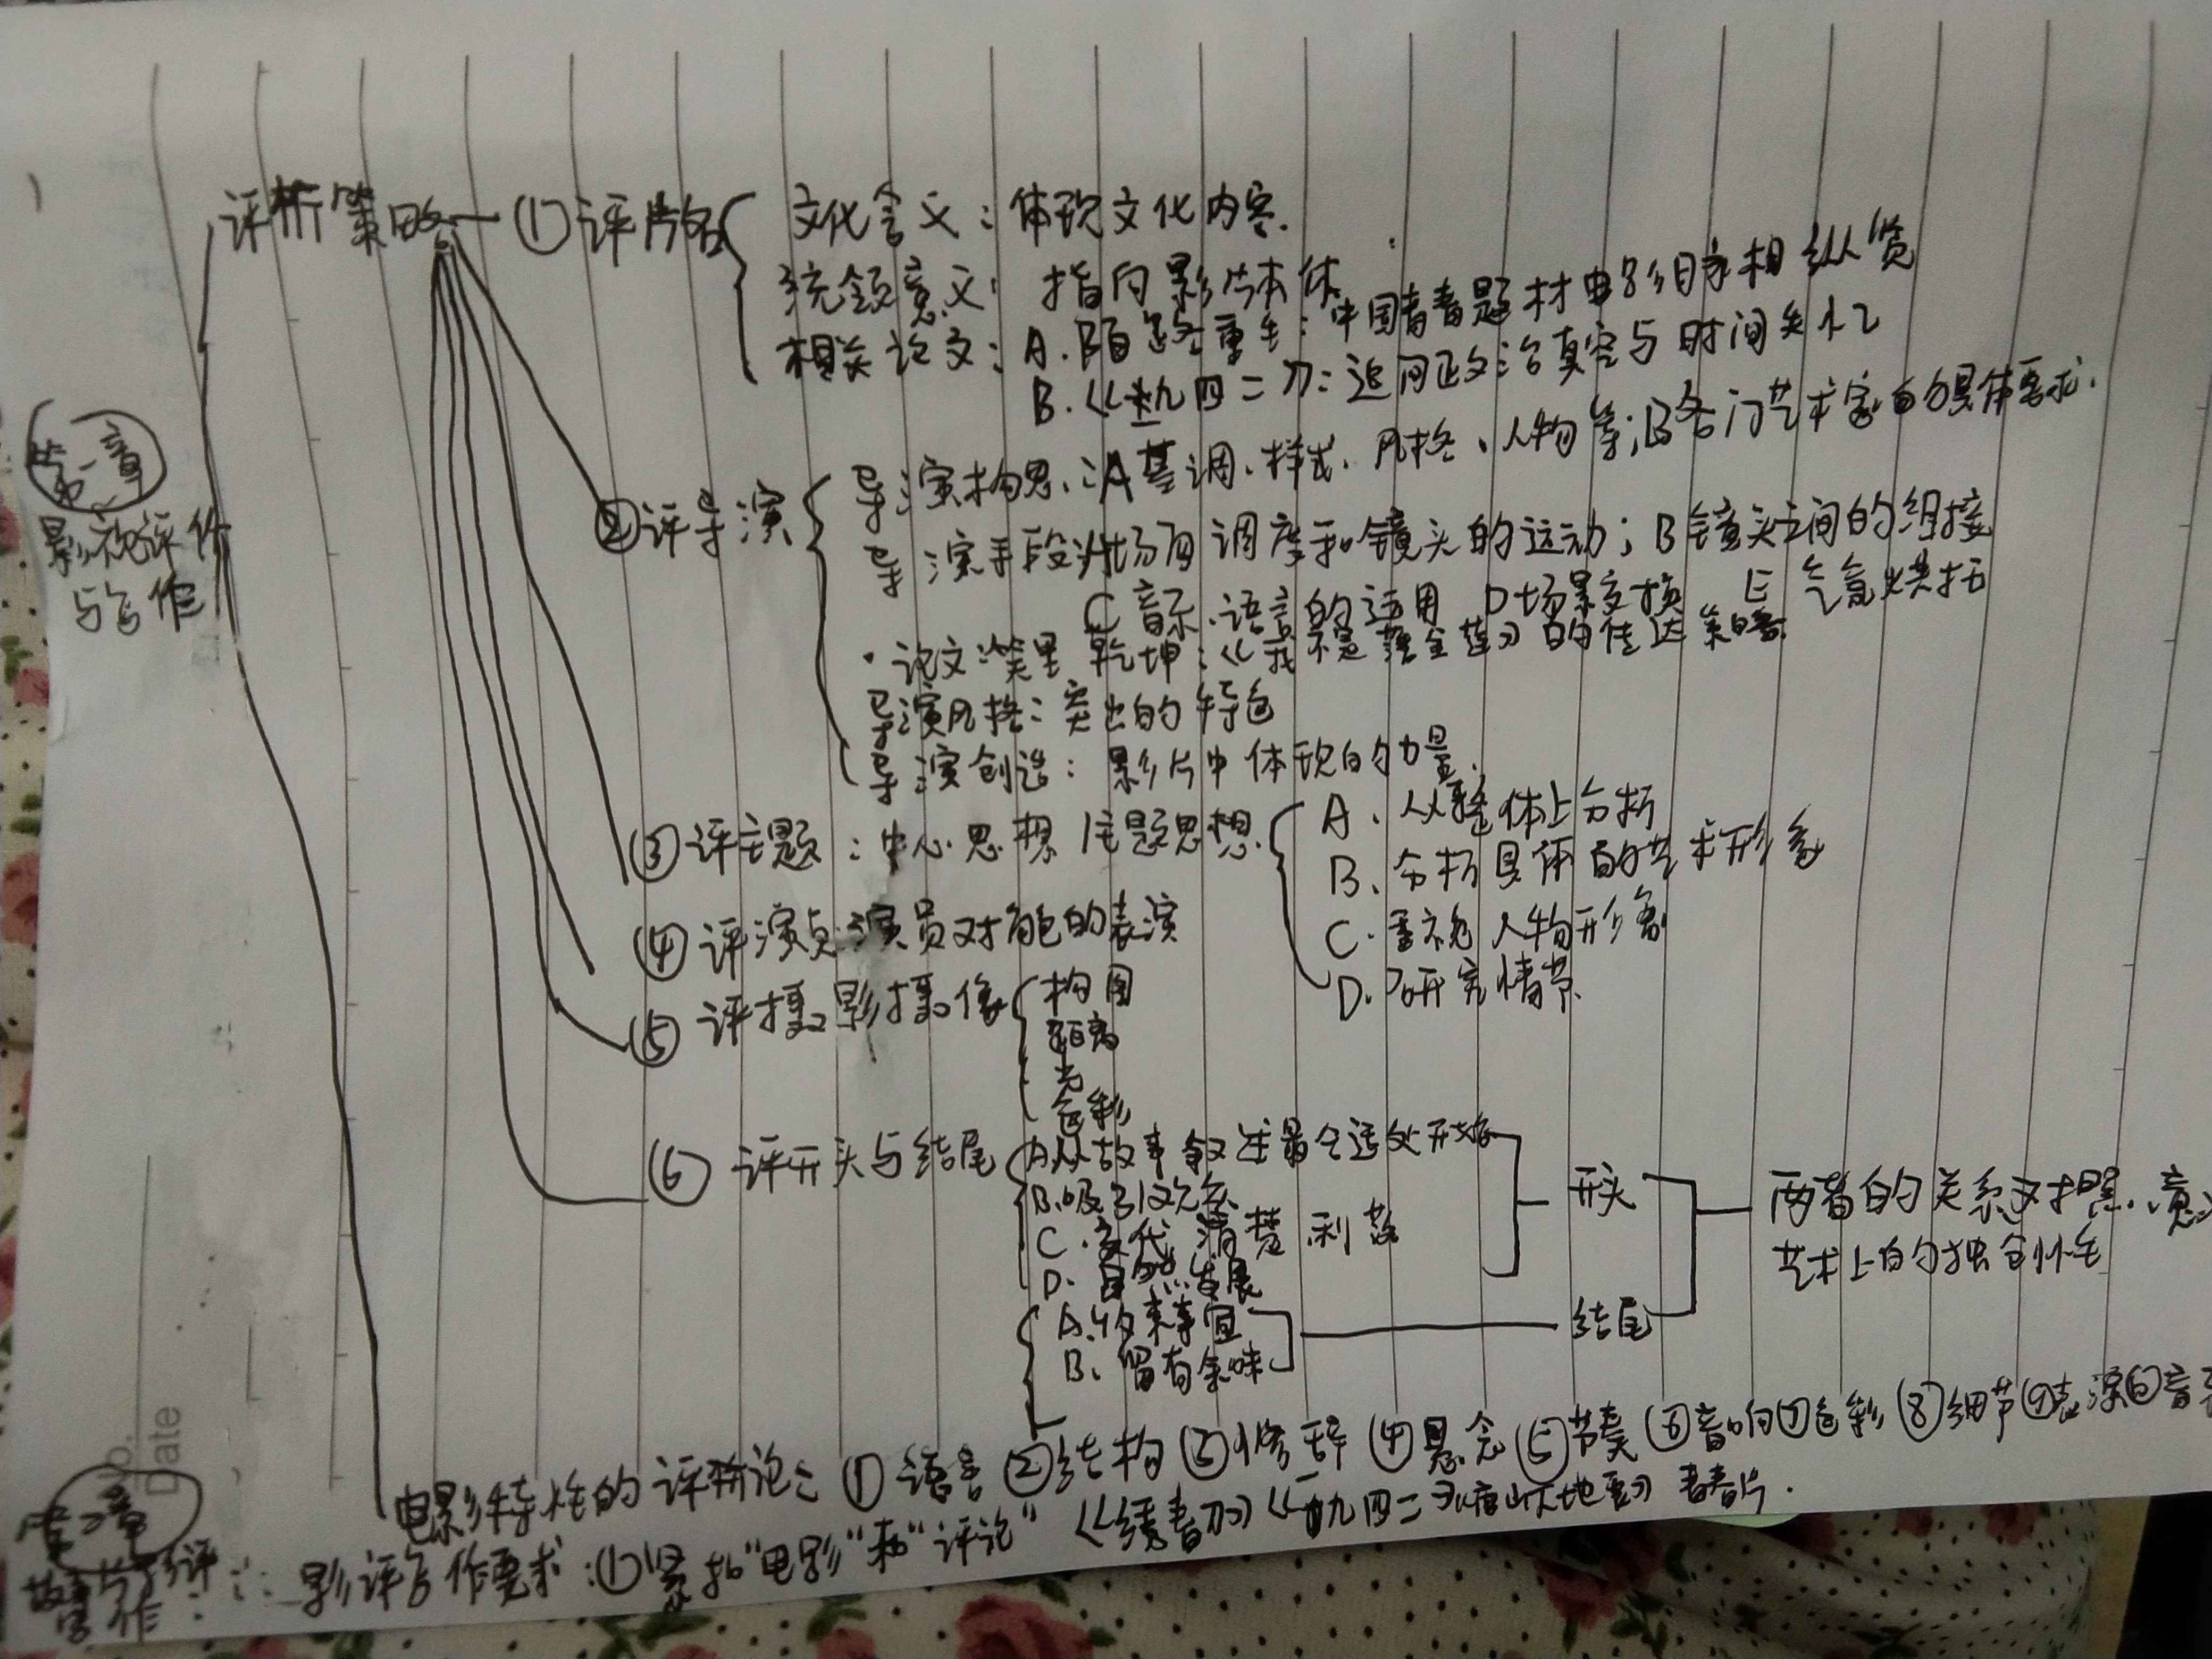 评析策略 ①评片名
文化含义：体现文化内容.
统领意义：指向影片本体
相关论文：A.陌路重生：中国青春题材电影目录相纵览
B.《一九四二》：追问政治真容与时间失忆
第一章
影视评价
与写作
②评导演
导演构思：A基调、样式、风格、人物等；B各门艺术家的具体要求.
导演手段：A场面调度和镜头的运动；B镜头之间的组接
C音乐.语言的运用 D场景变换 E气氛烘托
·论文：笑里乾坤：《我不是潘金莲》的传达策略
导演风格：突出的特色
导演创造：影片中体现的力量.
③评主题：中心思想 主题思想
A、从整体上分析
B、分析具体的艺术形象
C.重视人物形象
D.研究情节.
④评演员：演员对角色的表演
⑤评摄影摄像
构图
距离
光
色彩
⑥评开头与结尾
A从故事叙述最合适处开始
B.吸引观众
C.交代清楚利落
D.自然发展
开头
A.约束事宜
B、留有余味
结尾
两者的关系对照.意
艺术上的独创性
电影特性的评析论：①语言②结构③修辞④悬念⑤节奏⑥音响⑦色彩⑧细节⑨表演⑩音
No.
Date
第二章
故事与影评
写作：
影评写作要求：①紧扣“电影”和“评论”《绣春刀》《一九四二》《唐山大地震》青春片.